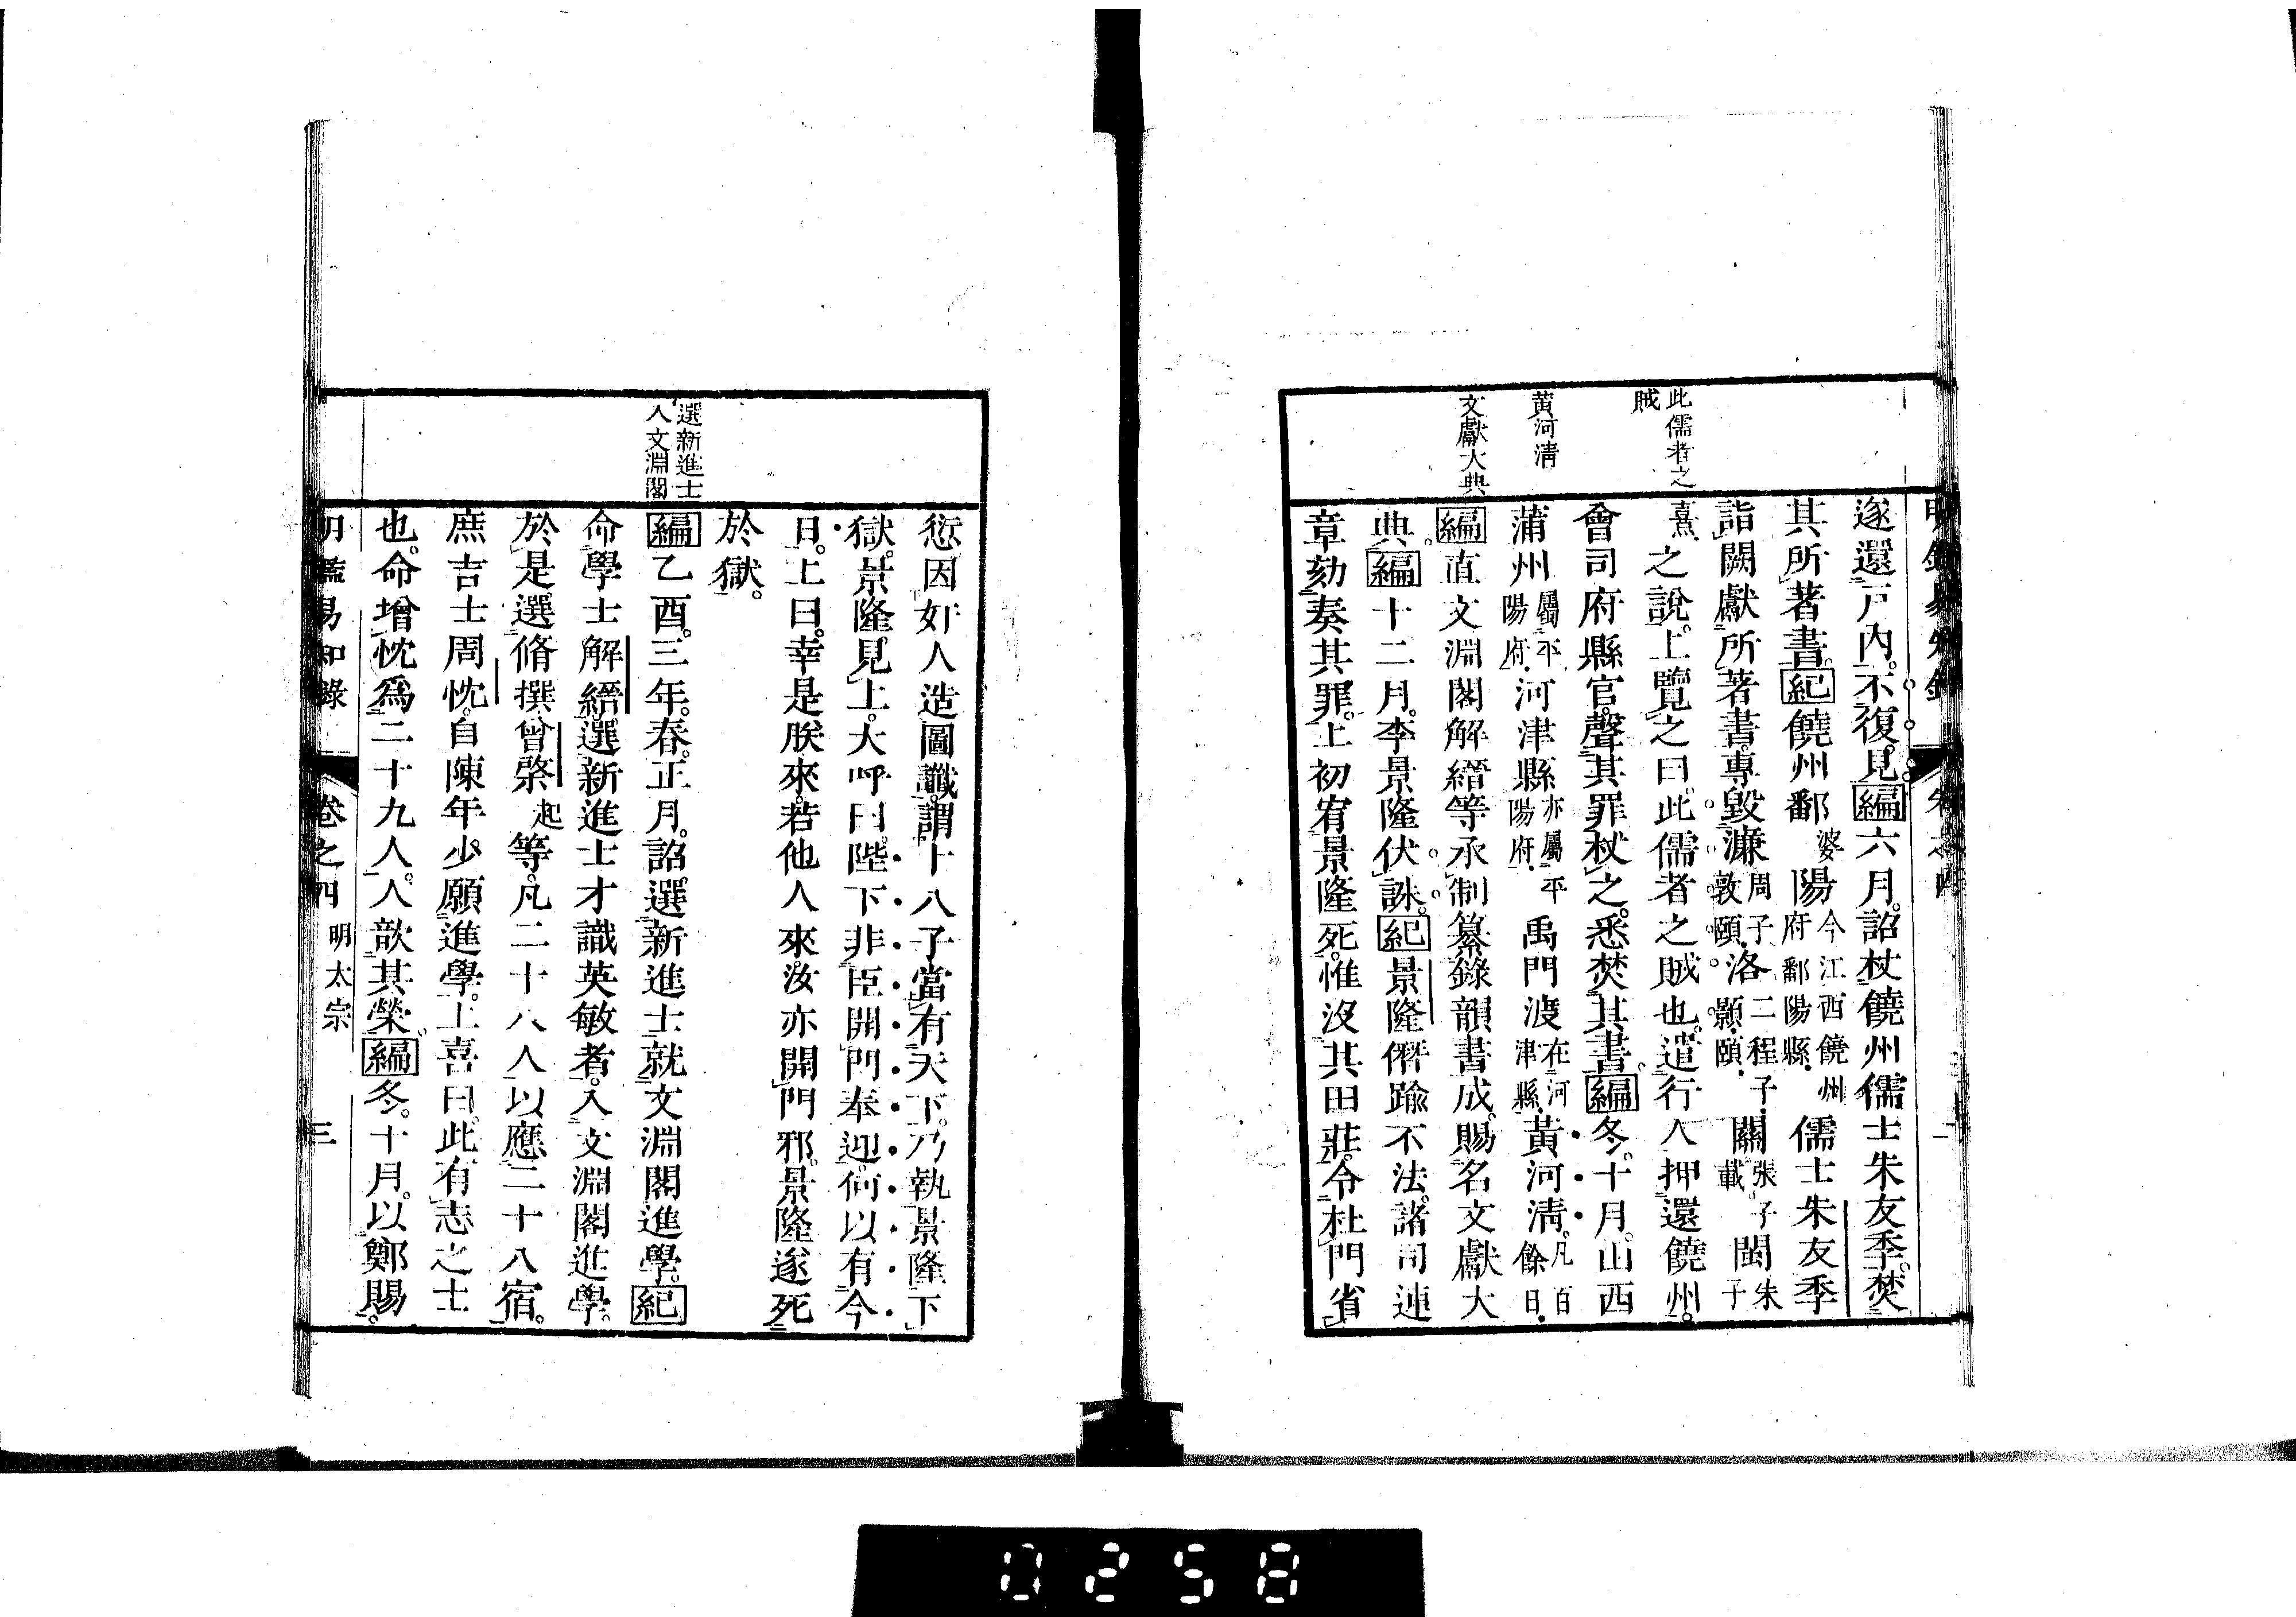 此儒者之
賊
黄河清
文獻大典
遂還戸内。不復見。編六月。詔杖饒州儒士朱友季。焚
其所著書。紀饒州鄱婆陽今江西饒州府鄱陽縣.儒士朱友季
詣闕獻所著書。專毀濂周子敦頤.洛二程子.顥.頤.關張子載.閩朱子
熹.之說。上覽之曰。此儒者之賊也。遣行人押還饒州。
會司府縣官。聲其罪杖之。悉焚其書。編冬。十月。山西
蒲州屬平陽府.河津縣亦屬平陽府.禹門渡在河津縣.黄河清。凡百餘日.
編直文淵閣解縉等承制纂錄韻書成。賜名文獻大
典。編十二月。李景隆伏誅。紀景隆僭踰不法。諸司連
章劾奏其罪。上初宥景隆死。惟沒其田莊。令杜門省
選新進士
入文淵閣
愆。因奸人造圖讖。謂十八子當有天下。乃執景隆下
獄。景隆見上。大呼曰。陛下非臣開門奉迎。何以有今
日。上曰。幸是朕來。若他人來。汝亦開門邪。景隆遂死
於獄。
編乙酉。三年。春。正月。詔選新進士就文淵閣進學。紀
命學士解縉。選新進士才識英敏者。入文淵閣進學。
於是選脩撰曾棨起等。凡二十八人以應二十八宿。
庶吉士周忱。自陳年少。願進學。上喜曰。此有志之士
也。命增忱爲二十九人。人歆其榮。編冬。十月。以鄭賜。
明鑑易知錄 卷之四 明太宗 三